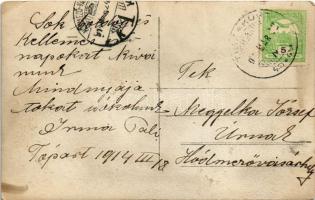 Sok boldog és
Kellemes
napokat kivá
nunk
Mindnyája
tokat üdvözlünk
Irma Pali
Tápart 1914 III/18
Tek
Megyelka József
Úrnak
Hódmezővásárhely